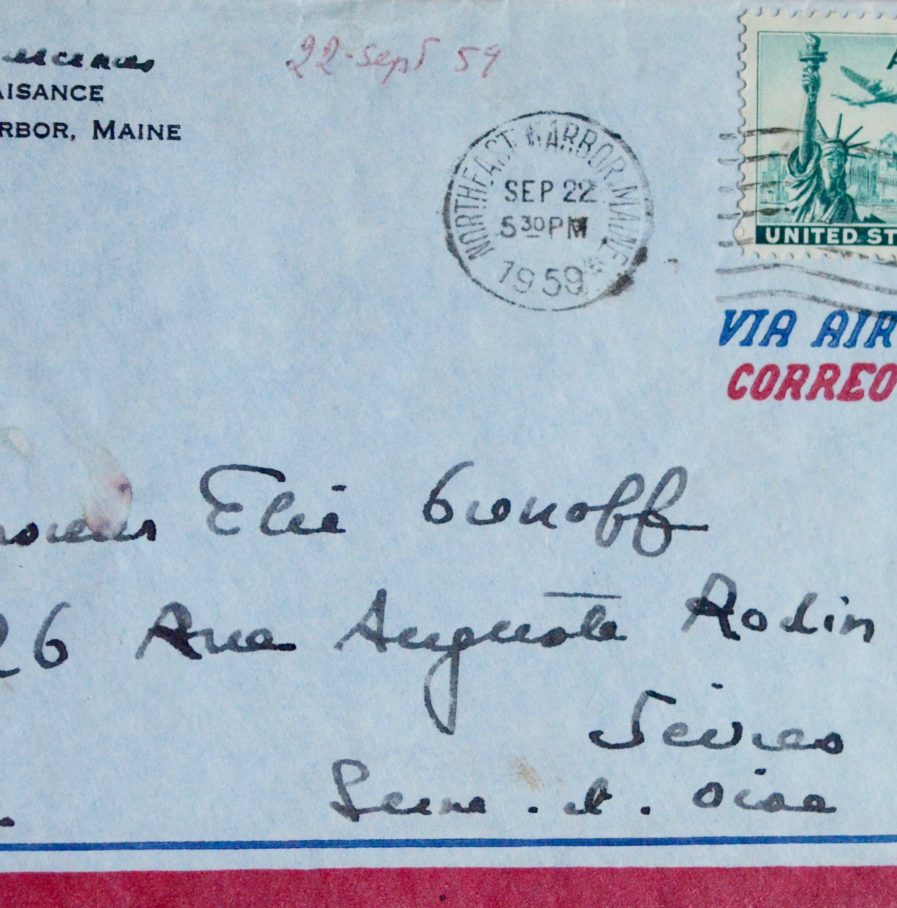 22-Sept 59
AISANCE
RBOR, MAINE
NORTHEAST HARBOR, MAINE
SEP 22
5 30 PM
1959
A
UNITED ST
VIA AIR
CORREO
Elie
26 Rue Auguste Rodin
Sèvres
Seine. et. Oise